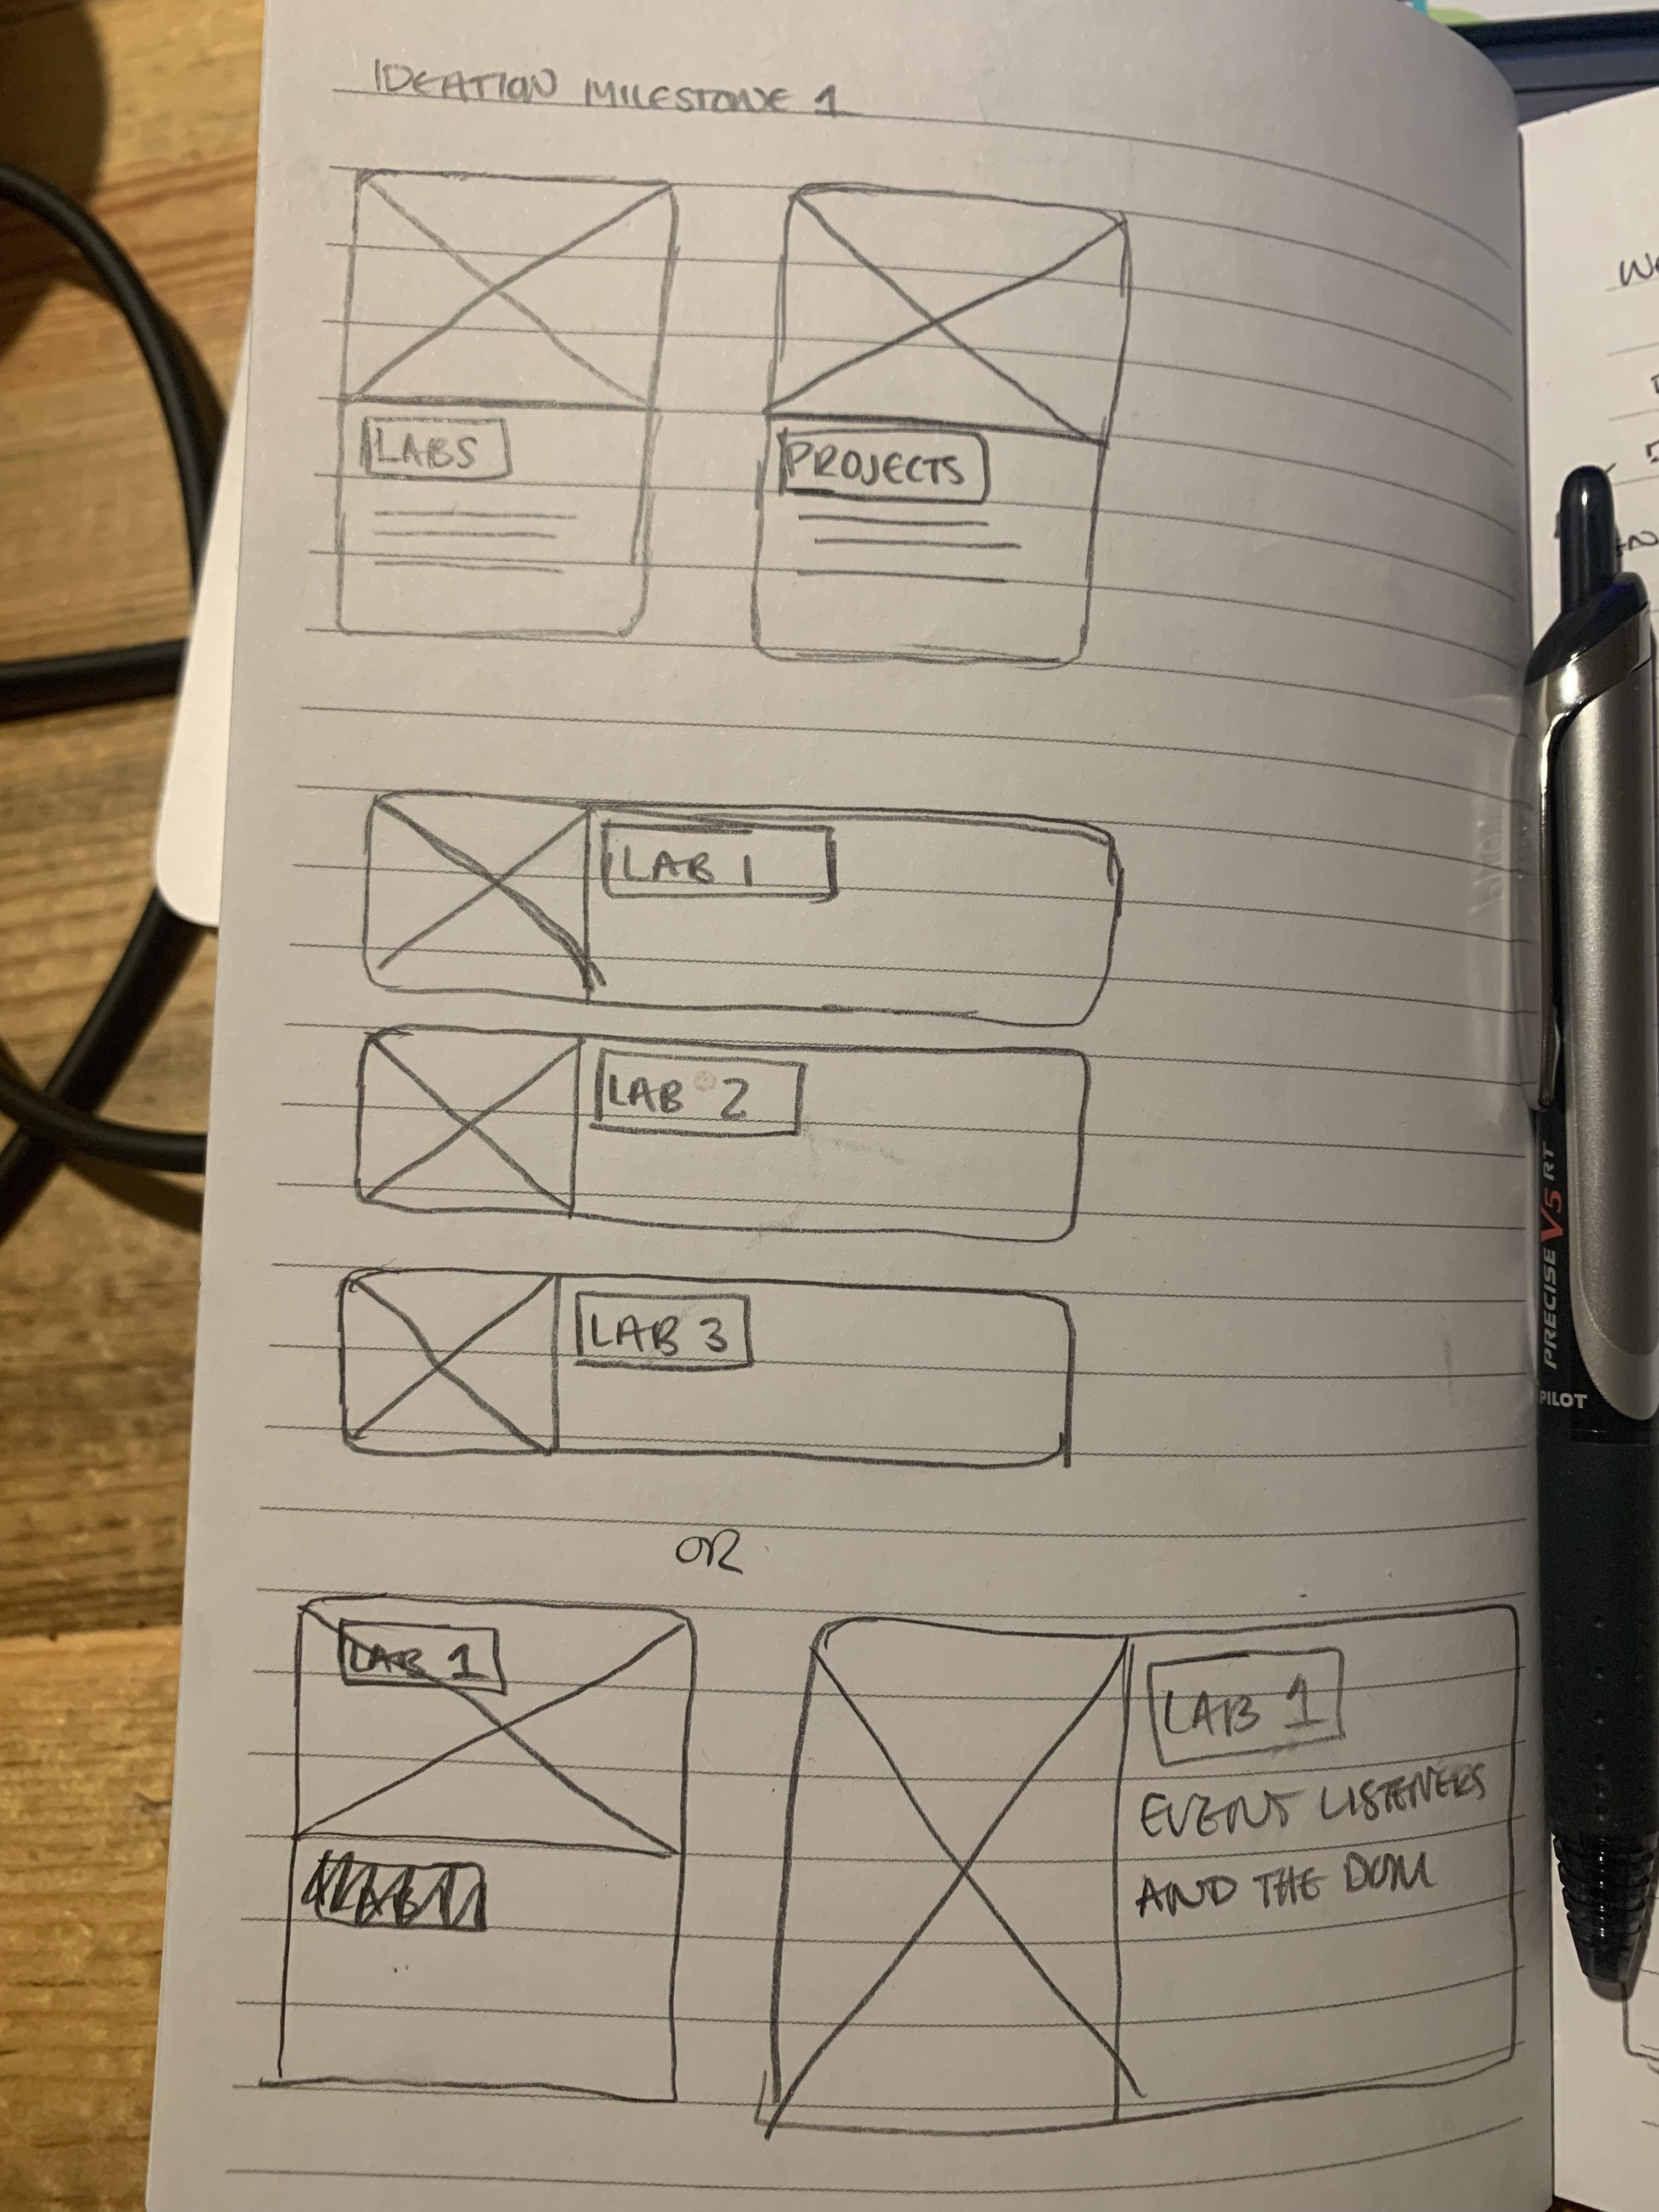 IDEATION MILESTONE 1
LABS
PROJECTS
LAB 1
LAB 2
LAB 3
OR
LAB 1
LAB 1
EVENT LISTENERS
AND THE DOM
PRECISE V5 RT
PILOT